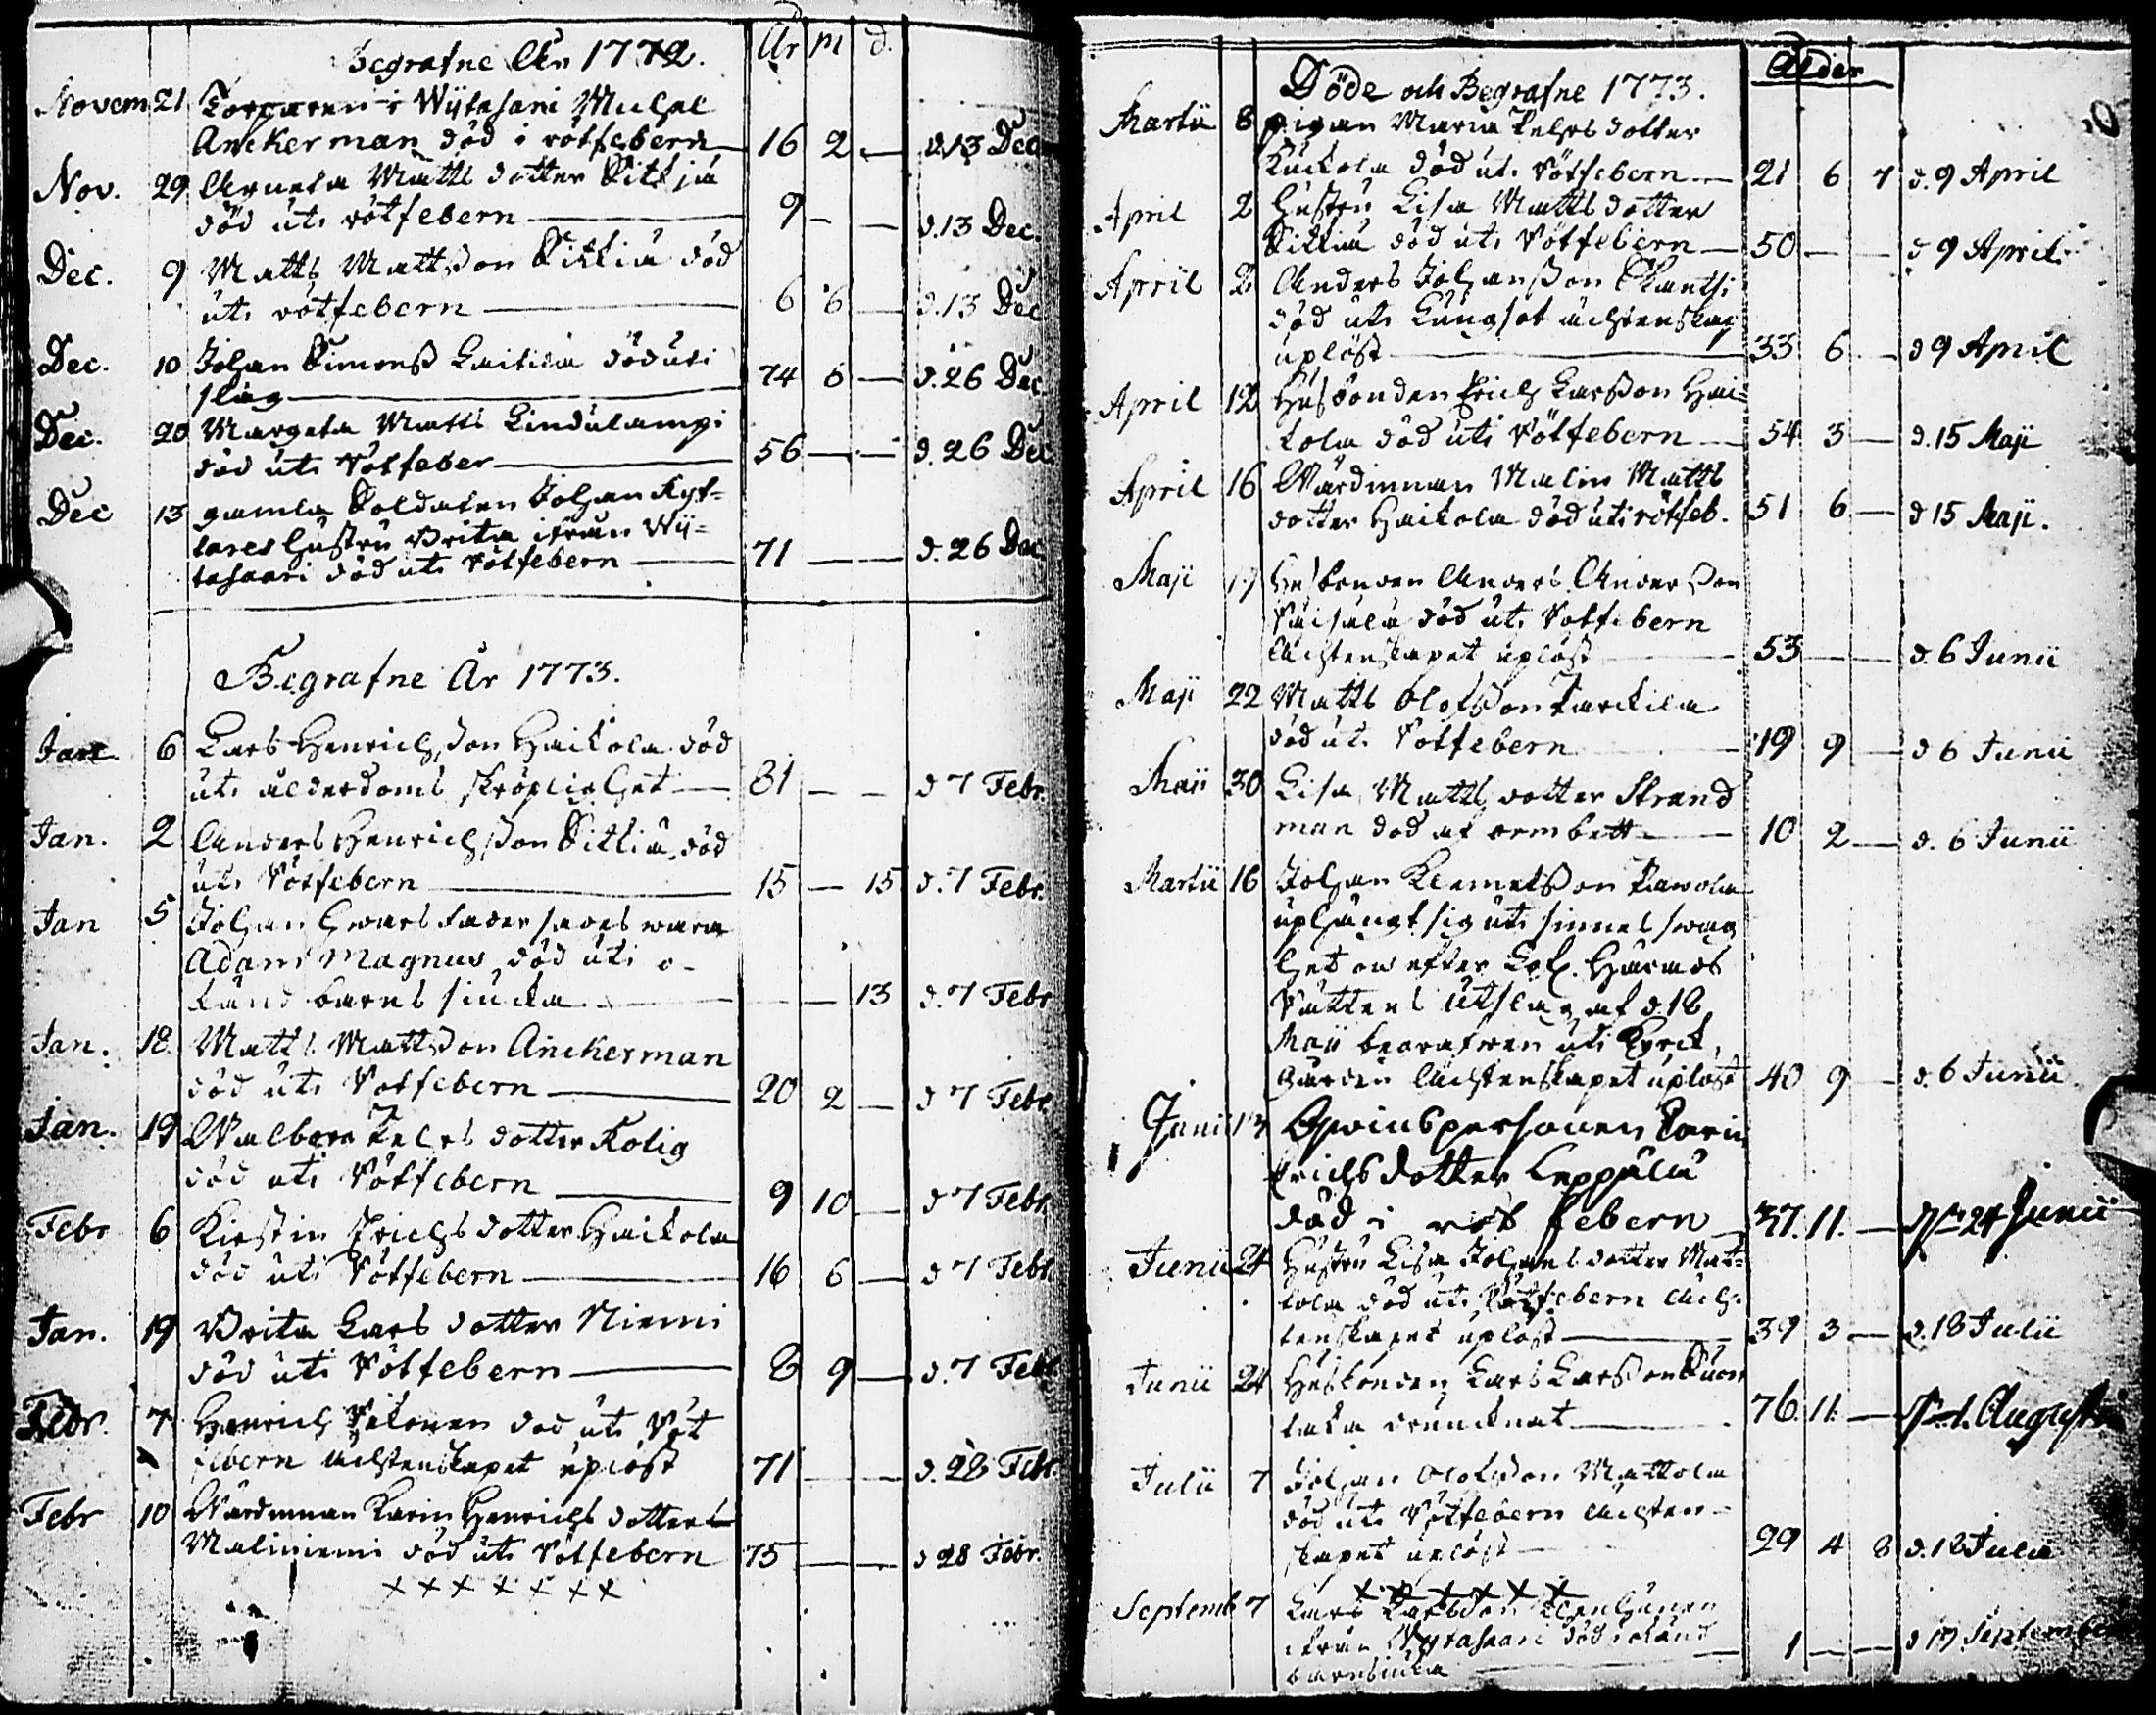 Begrafne År 1772.
År m d.
Novem 21 Torparen i Wijtasari Michel
Anckerman död i rötfebern 16 2 — d.13 Dec
Nov. 29 Agneta Matts dotter Sikkja
död uti rötfebern 9 — — d.13 Dec.
Dec. 9 Matts Mattsson Sikkiä död
uti rötfebern 6 6 — d.13 Dec
Dec. 10 Johan Simonss Laikila död uti
slag 74 6 — d.26 Dec
Dec. 20 Margeta Matts Lindulampi
död uti Rötfeber 56 — — d.26 Dec.
Dec 13 gamla Soldaten Johan
hustru Brita ifrån Wij=
tasaari död uti Rötfebern 71 — — d.26 Dec
Begrafne År 1773.
Jan. 6 Lars Henrichsson Haikola död
uti ålderdoms skröplighet 81 — — d 7 Febr.
Jan. 2 Anders Henrichsson Sikkiä död
uti Rötfebern 15 — 15 d.7 Febr.
Jan 5 Johan hwars fader säges wara
Adam Magnus död uti o-
känd barnsjucka — — 13 d.7 Febr
Jan. 18. Matts Mattsson Anckerman
död uti Rötfebern 20 2 — d 7 Febr
Jan. 19 Walborg Pehrs dotter Kolig
död uti Rötfebern 9 10 — d 7 Febr
Febr 6 Kirstin Erichs dotter Haikola
död uti Rötfebern 16 6 — d 7 Febr
Jan. 19 Brita Lars dotter Niemi
död uti Rötfebern 8 9 — d.7 Febr
Febr. 7 Henrich död uti Röt
febern Ächtenskapet uplöst 71 — — d.28 Febr.
Febr 10 Wärdinnan Karin Henrichs dotter
Maliniemi död uti Rötfebern 75 — — d 28 Febr.
× × × × × × ×
Döde och Begrafne 1773.
Ålder
Martii 8 pigan Maria Pehrs dotter
Kuckola död uti Rötfebern 21 6 7 d.9 April
April 2 Hustru Lisa Matts dotter
Sikkiä död uti Rötfebern 50 — — d 9 April
April 2 Anders Johansson Skantsi
död uti Lungsot ächtenskap
uplöst 33 6 — d 9 April
April 12 Husbonden Erich Larsson Hai=
kola död uti Rötfebern 54 3 — d.15 Maji
April 16 Wärdinnan Malin Matts
dotter Haikola död uti rötfeb. 51 6 — d 15 Maji.
Maji 17 Husbonden Anders Andersson
Räisälä död uti Rötfebern
Ächtenskapet uplöst 53 — — d.6 Junii
Maji 22 Matts Olofsson Parckila
död uti Rötfebern 19 9 — d 6 Junii
Maii 30 Lisa Matts dotter Strand
man död af ormbett 10 2 — d.6 Junii
Martii 16 Johan Klemetsson Pawola
uphängt sig uti sinnes swag
het och efter Härads
Rättens Utslag af d.18
Maii begrafwen uti Kyrck,
gården Ächtenskapet uplöst 40 9 — d.6 Junii
Junii 13 Qwinspersonen Karin
Erichsdotter Leppälä
död i röt febern 37. 11. — d. 24 Junii
Junii 24 Hustru Lisa Johans dotter Mat=
tola död uti Rötfebern Äch,
tenskapet uplöst 39 3 — d.18 Julii
Junii 24 Husbonden Lars Larsson Suon
taka drunknat 76. 11. — d. 1. Augusti
Julii 7 Johan Olofsson Mattola
död uti Rötfebern Ächten-
skapet uplöst 29 4 8 d.18 Julii
× × × × × ×
Septemb 7 Lars Larsson
ifrån Wijtasaari död i okänd
barnsjuka 1 — — d 19 September